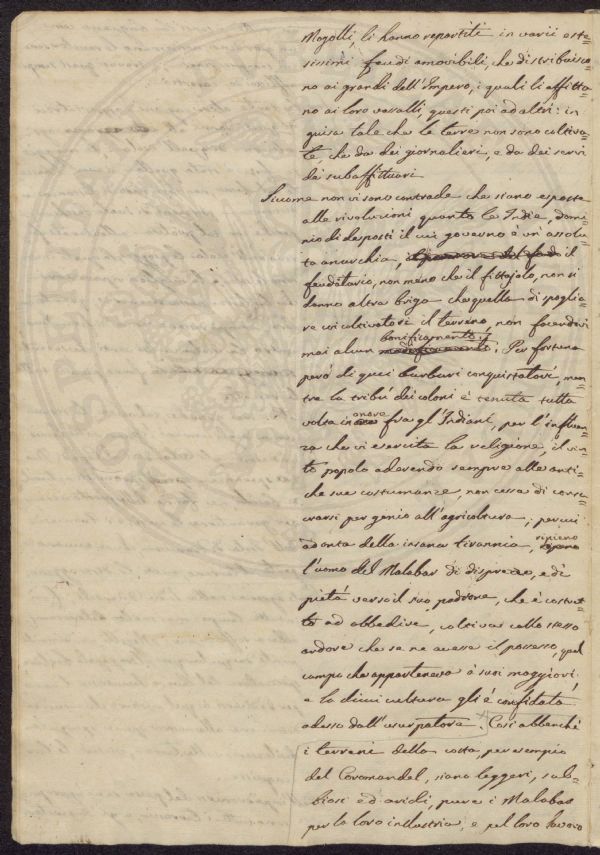 Mogolli, li hanno repartiti in varii este=
sissimi feudi amovibili, che distribuisco=
no ai grandi dell'Impero, i quali li affitta=
no ai loro vassalli, questi poi ad altri: in
guisa tale che le terre non sono coltiva=
te, che da dei giornalieri, e da dei servi
de subaffittuari
Siccome non vi sono contrade che siano esposte
alle rivoluzioni quanto le Indie, domi=
nio di despoti il cui governo è un'assolu=
ta anarchia, il
feudatario, non meno che il fittajolo, non si
danno altra briga che quella di spoglia=
re coi cultivatori il terreno, non facendovi
bonificamenti
mai alcun. Per fortuna
però di quei barbari conquistatori, men=
tre la tribù dei coloni è tenuta tutta
onore
volta in fra gl'Indiani, per l'influen=
za che vi esercita la religione, il vin=
to popolo aderendo sempre alle anti=
che sue costumanze, non cessa di consa=
crarsi per genio all'agricoltura; per cui
ripieno
ad onta della insana tirannia,
l'uomo del Malabar di disprezzo, e di
pietà verso il suo padrone, che è costret=
to ad obbedire, coltiva collo stesso
ardore che se ne avesse il possesso, quel
campo che apparteneva a suoi maggiori,
e la di cui cultura gli è confidata
adesso dall'usurpatore. Così abbenchè
i terreni della costa, per esempio
del Coromandel, siano leggeri, sab=
biosi ed aridi, pure i Malabar
per la loro industria, e pel loro lavoro